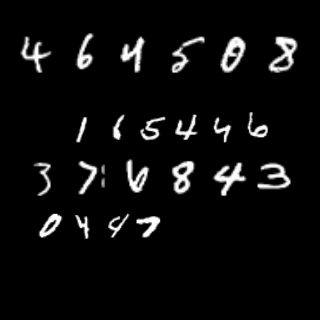 464508
165446
376843
0447